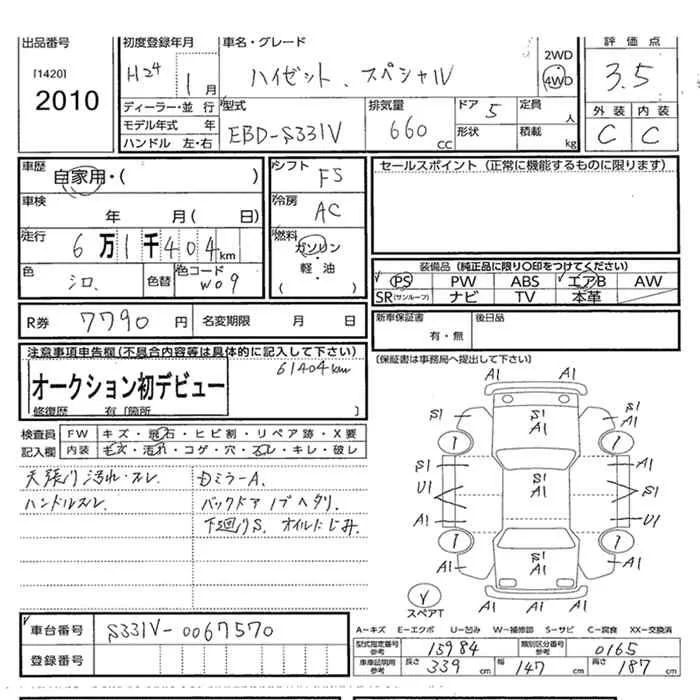 出品番号
[1420]
2010
初度登録年月
H24 1月
ディーラー・並 行
モデル年式 年
ハンドル 左・右
車名・グレード
ハイゼット、スペシャル
2WD
4WD
型式
EBD-S331V
排気量
660 CC
ドア 5
形状
定員 人
積載 kg
評価点
3.5
外装 内装
C C
車歴
自家用・( )
車検
年 月( 日)
走行
6万1千404km
色
シロ.
色替
色コード
W09
シフト
F5
冷房
AC
燃料
ガソリン
・
軽・油
( )
セールスポイント (正常に機能するものに限ります)
装備品 (純正品に限り〇印をつけてください)
PS PW ABS エアB AW
SR(サンルーフ) ナビ TV 本革
R券 7790 円 名変期限 月 日
新車保証書
有・無
後日品
(保証書は事務局へ提出して下さい)
注意事項申告欄 (不具合内容等は具体的に記入して下さい)
61404km
オークション初デビュー
修復歴 有 [箇所 ]
検査員 FW キズ・飛石・ヒビ割・リペア跡・X要
記入欄 内装 モズ・汚れ・コゲ・穴・スレ・キレ・破レ
天張り汚れ・スレ
ハンドルスレ
ミラーA.
バックドア
下廻りS. オイルにじみ.
A1
A1 A1
S1 S1
S1
A1
S1 S1
A1
U1 S1
A1 U1
S1
A1
A1 A1
A1 A1 A1
Y
スペアT
車台番号
S331V-0067570
登録番号
A-キズ E-エクボ U-凹み W-補修跡 S-サビ C-腐食 XX-交換済
型式指定番号 参考 15984
類別区分番号 参考 0165
車庫証明用 参考
長さ 339 cm
幅 147 cm
高さ 187 cm